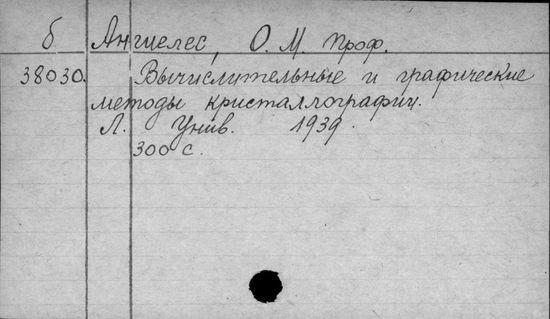 б Аншелес, О. М. проф.
38030. Вычислительные и графические
методы кристаллографии.
Л. Унив. 1939.
300 с.